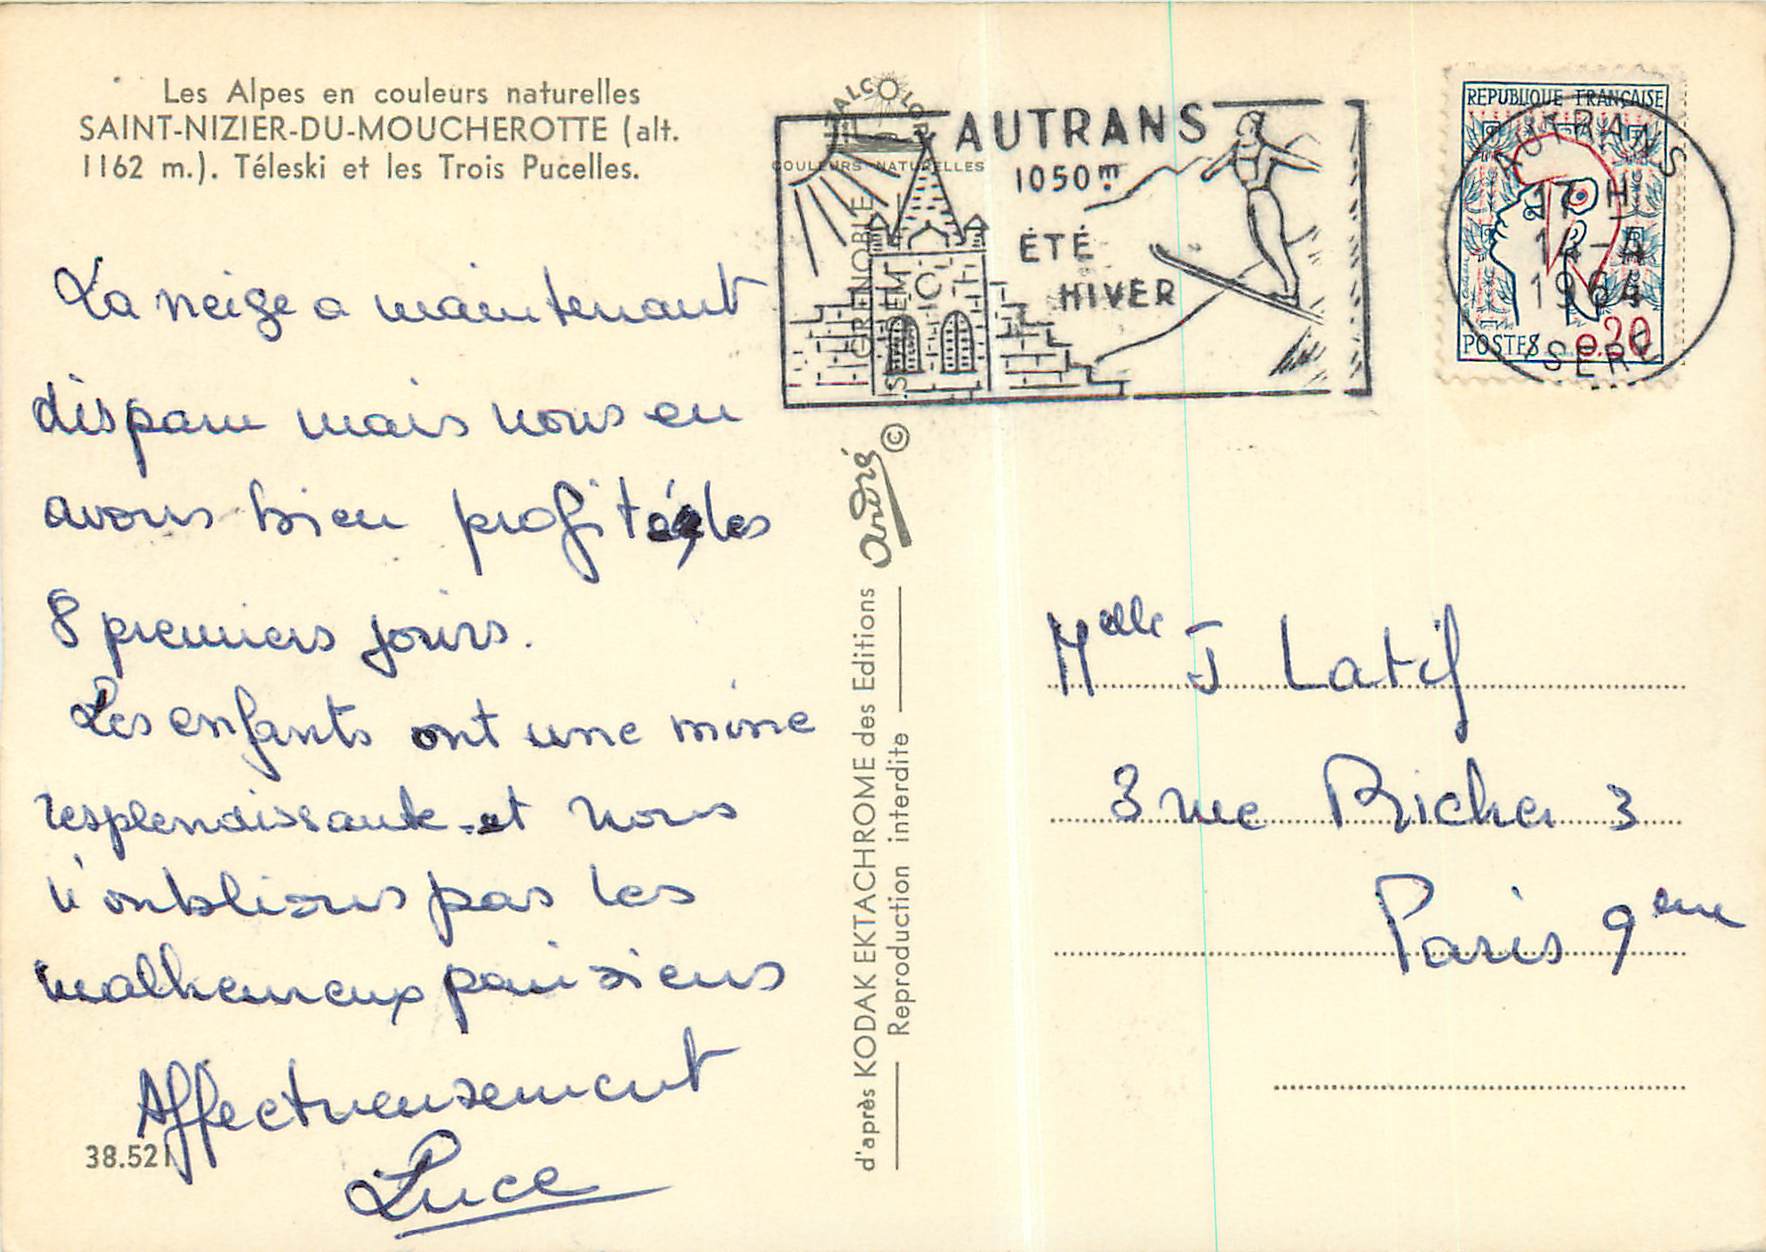 Les Alpes en couleurs naturelles
SAINT-NIZIER-DU-MOUCHEROTTE (alt.
1162 m.). Téleski et les Trois Pucelles.
La neige a maintenant
disparu mais nous en
avons bien profité les
8 premiers jours.
Les enfants ont une mine
resplendissante et nous
n'oublions pas les
malheureux parisiens
Affectueusement
Luce
38.521
COULEURS NATURELLES
GRENOBLE
d'après KODAK EKTACHROME des Editions
andré ©
Reproduction interdite
AUTRANS
1050m
ÉTÉ
HIVER
REPUBLIQUE FRANÇAISE
POSTES 0.20
AUTRANS
17 H
14-4
1964
ISERE
Melle J Latif
3 rue Richer 3
Paris 9eme